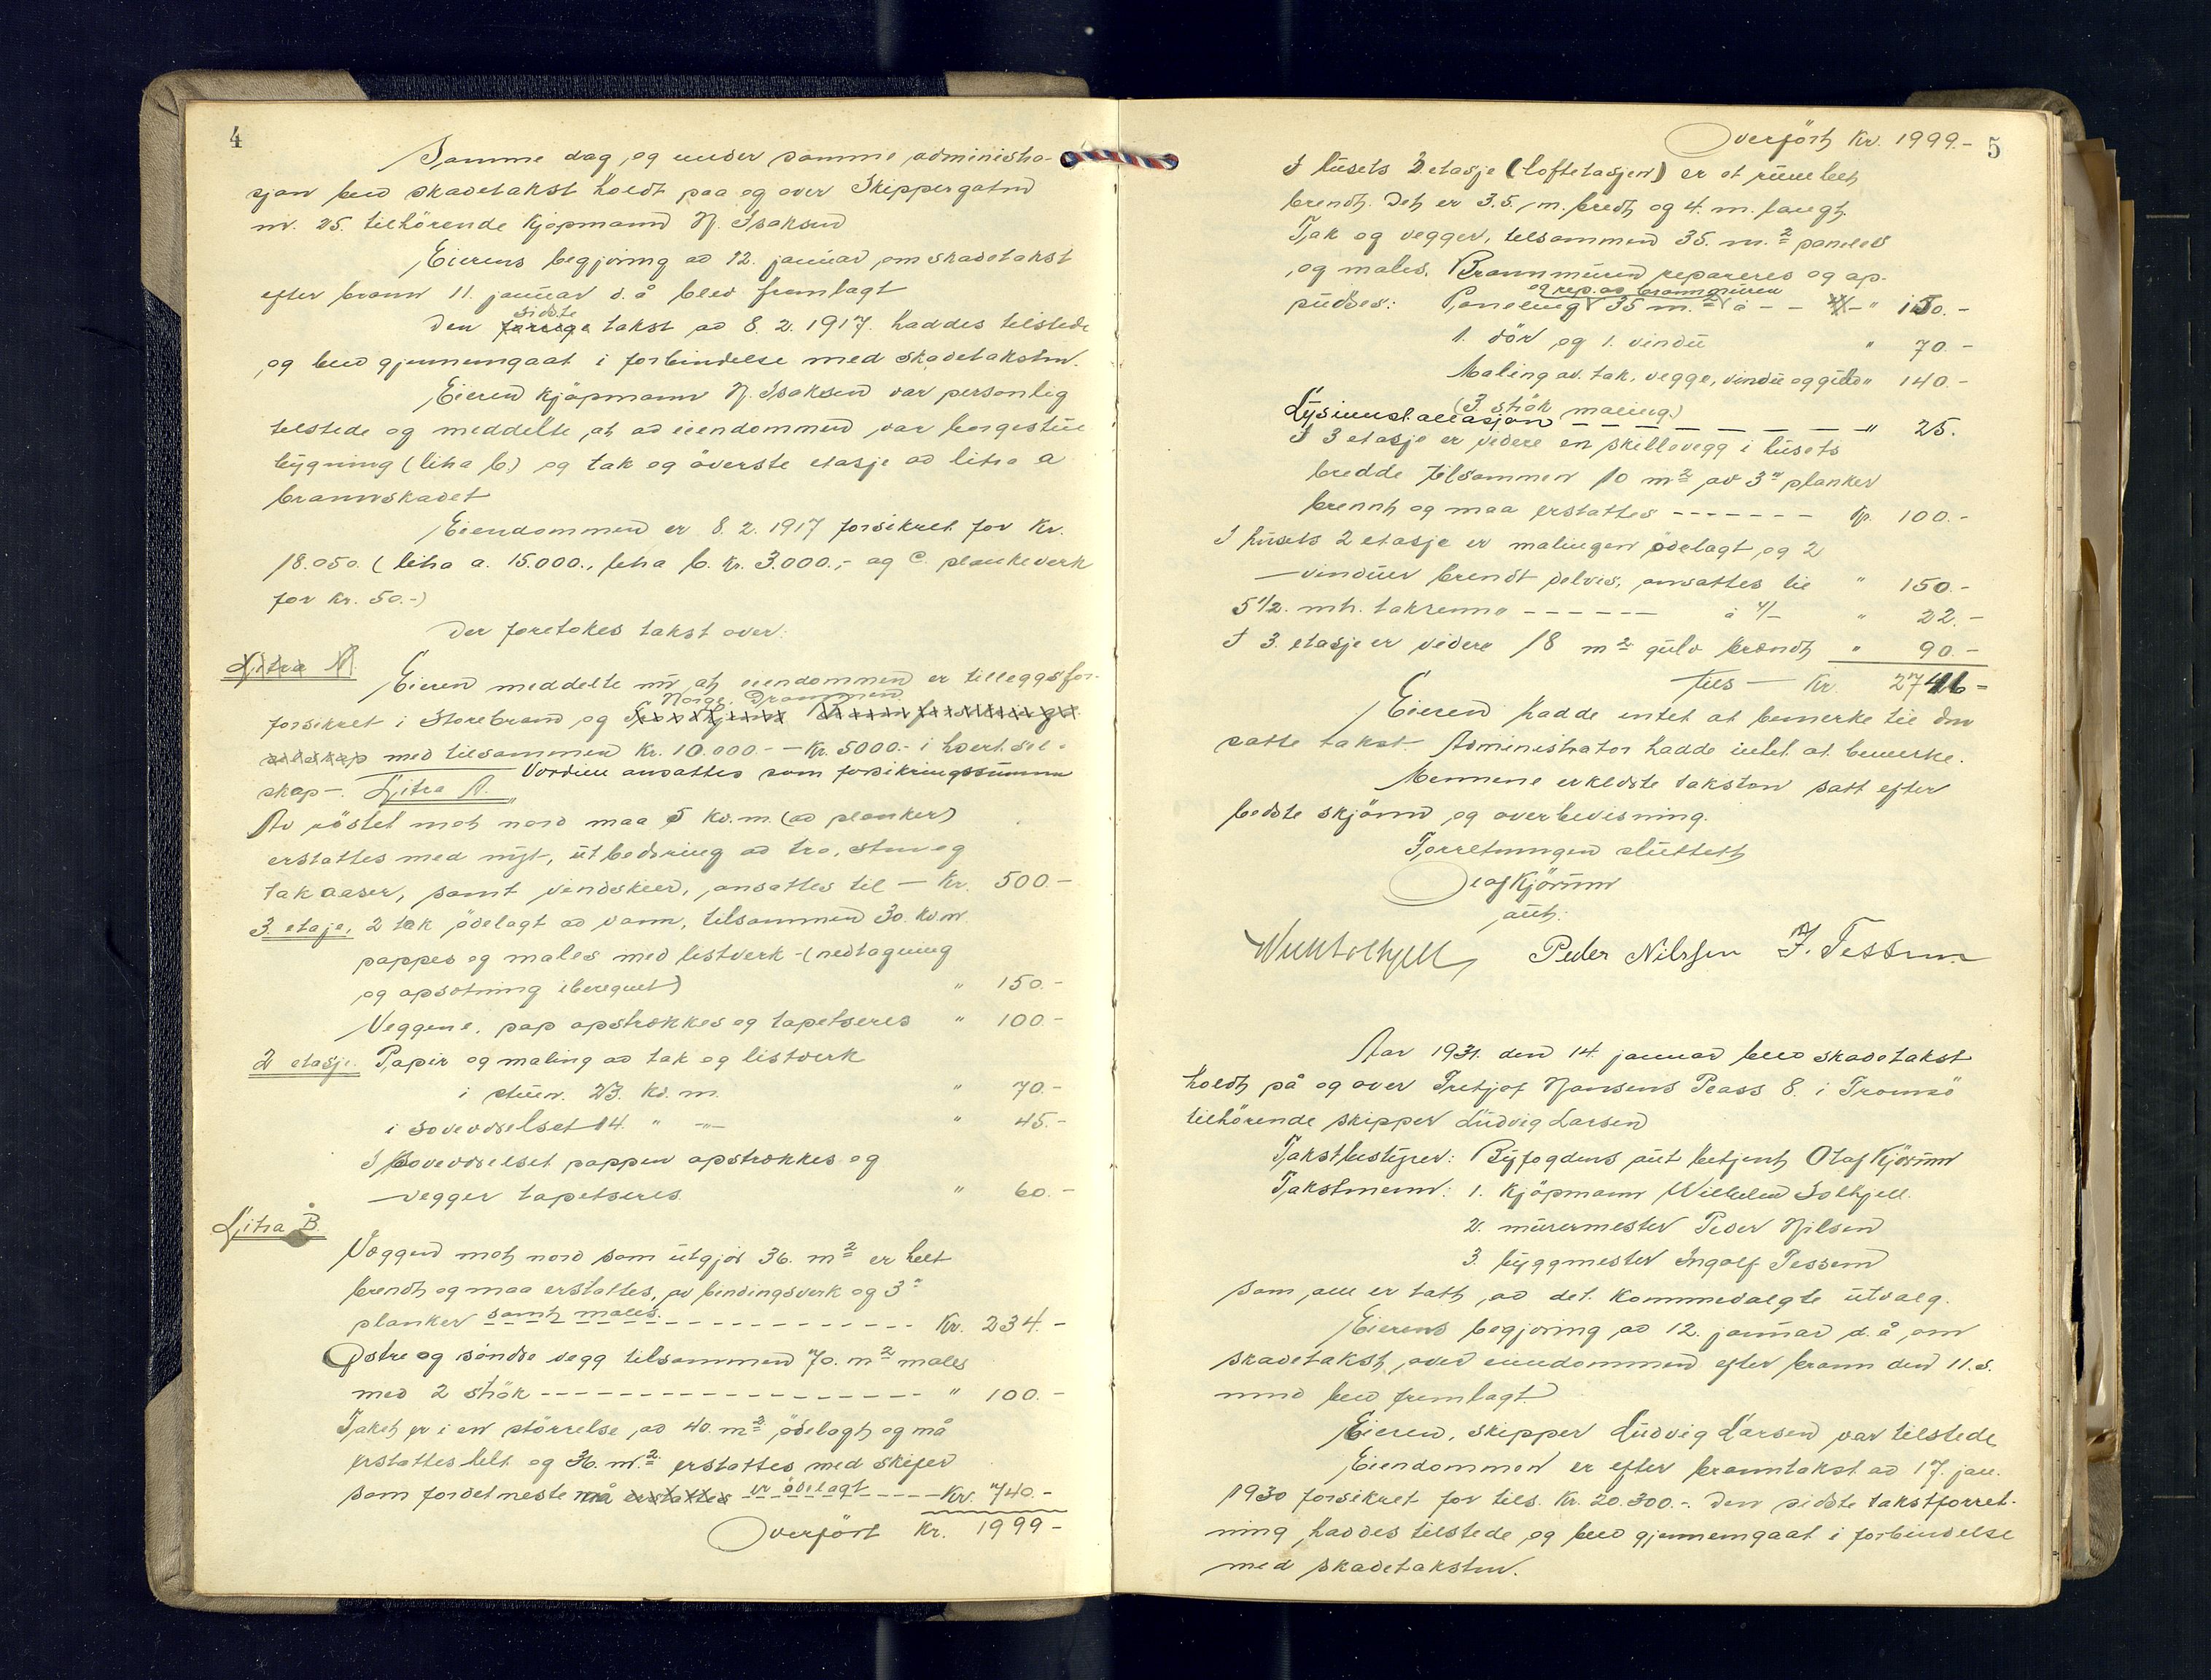 4
Samme dag, og under samme administra-
sjon blev skadetakst holdt paa og over Skippergaten
nr. 25. tilhörende kjöpmann N. Isaksen
Eierens begjæring av 12. januar, om skadetakst
efter brann 11. januar d.å blev fremlagt
sidste
Den forrige takst av 8. 2. 1917. haddes tilstede
og blev gjennemgaat i forbindelse med skadetaksten.
Eieren kjöpmann N. Isaksen var personlig
tilstede og meddelte, at av eiendommen var borgestue
bygning (litra b) og tak og överste etasje av litra a
brannskadet
Eiendommen er 8. 2. 1917 forsikret for Kr.
18.050. (litra a. 15.000., litra b. Kr. 3.000,- og C. plankeverk
for Kr. 50.-)
Der foretokes takst over:
Litra A
Eieren meddelte nu at eiendommen er tilleggsfor-
Norge, Drammen
forsikret i Storebrand og
selskap med tilsammen Kr. 10.000.- – Kr. 5000.- i hvert sel-
skap-. Litra A. Verdien ansattes som forsikringssummen
Av röstet mot nord maa 5 kv.m. (av planker)
erstattes med nyt, utbedring av tro, sten og
takaaser, samt vindskier, ansattes til — Kr. 500.-
3. etaje, 2 tak ødelagt av vann, tilsammen 30. kv.m.
pappes og males med listverk - (nedtagning
og opsetning iberegnet) " 150.-
Veggene, pap opstrækkes og tapetseres " 100-
2 etasje. Papir og maling av tak og listverk
i stuen. 23. kv. m. " 70.-
i soveværelset 14. " —"— " 45.-
I soveværelset pappen opstrækkes og
vegger tapetseres. " 60.-
Litra B.
Veggen mot nord som utgjör 36. m² er helt
brendt og maa erstattes, av bindingsverk og 3"
planker samt males. ------------- Kr. 234.-
Østre og söndre vegg tilsammen 70. m² males
med 2 strök ------------------- " 100.-
Taket er i en störrelse av 40. m² ödelagt og må
erstattes helt og 36. m² erstattes med skifer
som fordetmeste må erstattes er ödelagt ------ Kr. 740.-
Overfört Kr. 1999-
Overfört Kr. 1999.- 5
I husets 3 etasje (loftetasjen) er et rum helt
brendt. Det er 3.5. m. bredt og 4. m. langt.
Tak og vegger, tilsammen 35. m.² paneles
og males. Brannmuren repareres og op-
og rep. av brannmuren
pudses: Paneling 35 m.² à - - " 150.-
1. dör og 1. vindu " 70.-
Maling av tak, vegge, vindu og gulv " 140.-
(3 strök maling.)
Lysinnstallasjon — — — — — — — " 25.
I 3 etasje er videre en skillevegg i husets
bredde tilsammen 10 m² av 3" planker
brennt og maa erstattes ------- Kr. 100.-
I husets 2 etasje er malingen ödelagt, og 2
vinduer brendt delvis, ansattes til " 150.-
5 1/2. mtr. takrenne ------ à 4/- " 22.-
I 3. etasje er videre 18 m² gulv brendt " 90.-
Tils — Kr. 2746-
Eieren hadde intet at bemerke til den
satte takst. Administrator hadde intet at bemerke.
Mennene erklærte taksten satt efter
bedste skjönn og overbevisning.
Forretningen sluttet
Olaf Kjörum
aut.
Wilh Solhjell Peder Nilssen I. Tessem
Aar 1931. den 14. januar blev skadetakst
holdt på og over Fretjof Nansens Plass 8. i Tromsö
tilhörende skipper Ludvig Larsen
Takstbestyrer: Byfogdens aut betjent Olaf Kjörum
Takstmenn: 1. Kjöpmann Wilhelm Solhjell.
2. murermester Peder Nilsen
3. byggmester Ingolf Tessem
som alle er tatt av det. kommevalgte utvalg.
Eierens begjæring av 12. januar d.å om
skadetakst over eiendommen efter brann den 11. s.
mnd blev fremlagt.
Eieren, skipper Ludvig Larsen var tilstede
Eiendommen er efter branntakst av 17. jan.
1930 forsikret for tils. Kr. 20.300.-. Den sidste takstforret-
ning haddes tilstede og blev gjennemgaat i forbindelse
med skadetaksten.